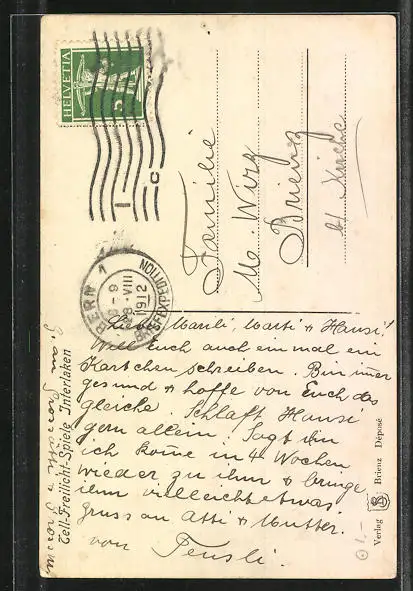 HELVETIA
5
1
C
BERN 1
8-9
8-VIII
1912
BRIEFEXPEDITION
Familie
M. Wirz
Brienz
b/ Kirche
Liebe Marili, Marti + Hansi!
Will Euch auch ein mal ein
Kärtchen schreiben. Bin immer
gesund + hoffe von Euch das
gleiche. Schlaft Hansi
gern allein. Sagt ihm
ich kome in 4 Wochen
wieder zu ihm + bringe
ihm vielleicht etwas
Gruss an Atti + Mutter.
von
Tell-Freilicht-Spiele Interlaken
Verlag Brienz Déposé
1.-